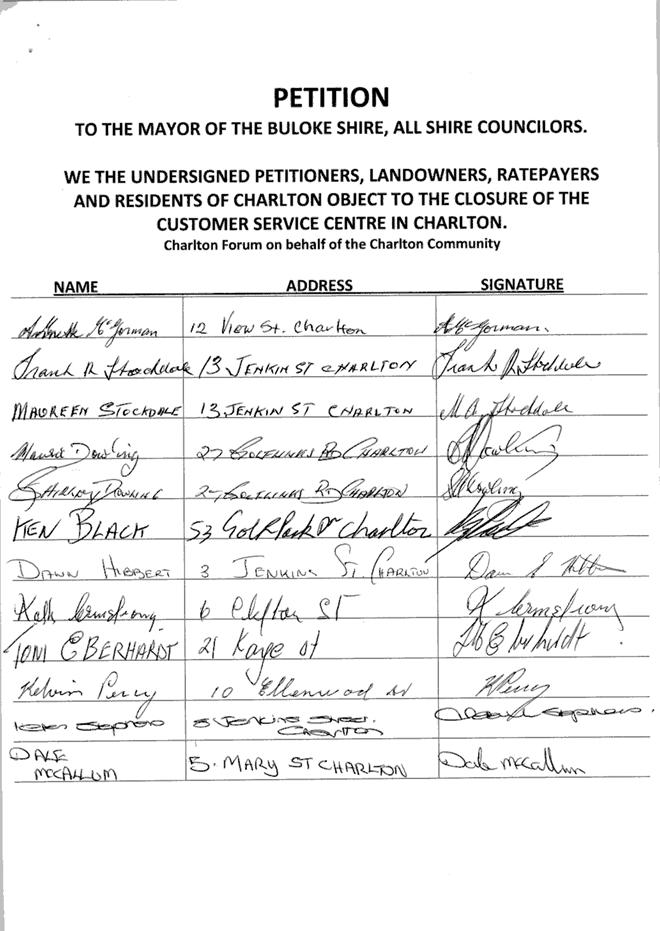 PETITION
TO THE MAYOR OF THE BULOKE SHIRE, ALL SHIRE COUNCILORS.
WE THE UNDERSIGNED PETITIONERS, LANDOWNERS, RATEPAYERS
AND RESIDENTS OF CHARLTON OBJECT TO THE CLOSURE OF THE
CUSTOMER SERVICE CENTRE IN CHARLTON.
Charlton Forum on behalf of the Charlton Community
NAME ADDRESS SIGNATURE
McGorman 12 View St. Charlton McGorman.
Frank R Stockdale 13 JENKIN ST CHARLTON Frank R Stockdale
MAUREEN STOCKDALE 13 JENKIN ST CHARLTON M A Stockdale
Dowling 27 CHARLTON Dowling
SHIRLEY DOWLING 27 RD CHARLTON Dowling
KEN BLACK 53 Golf Park Dr Charlton
DAWN HIBBERT 3 JENKINS ST. CHARLTON
Kath Armstrong 6 Clifton ST K Armstrong
TONI EBERHARDT 21 Kaye st
Kelvin Percy 10 Ellenwood st K Percy
5 JENKINS STREET.
CHARLTON
DALE
MCCALLUM 5. MARY ST CHARLTON Dale McCallum